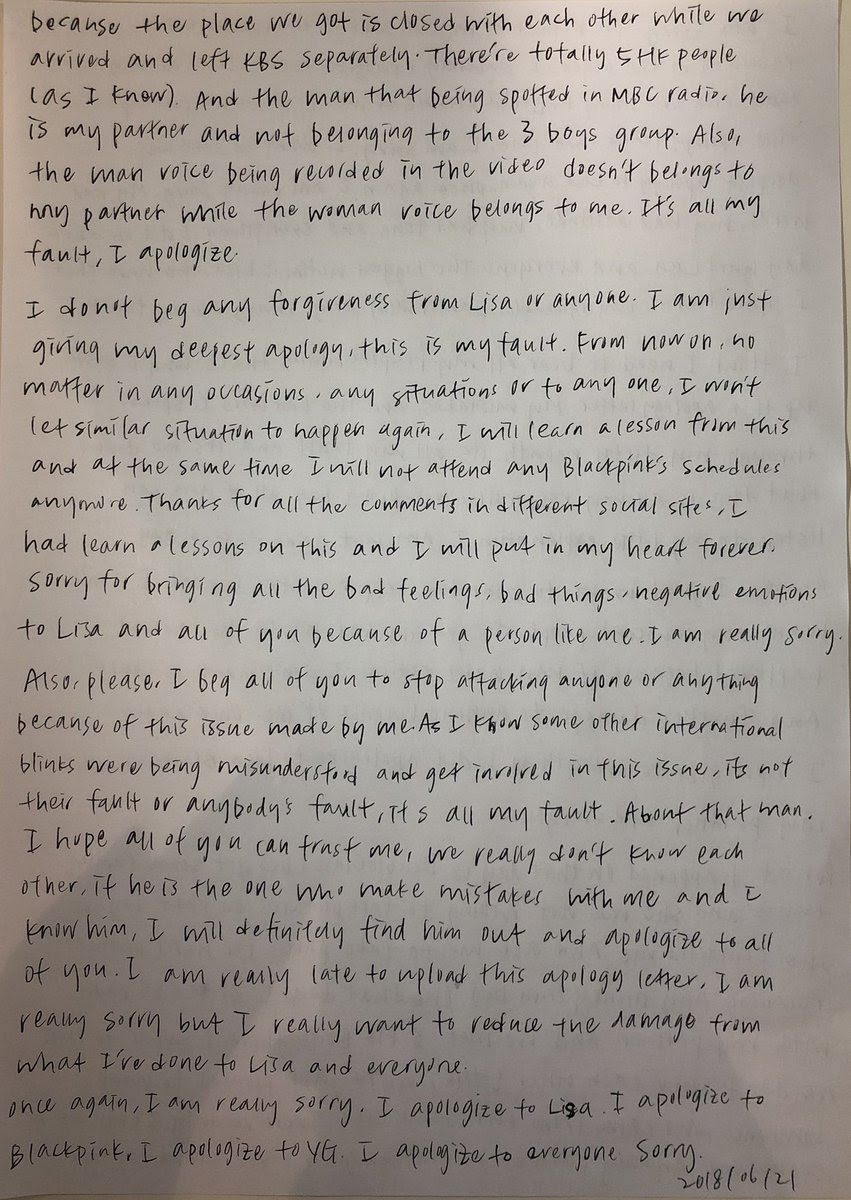 because the place we got is closed with each other while we
arrived and left KBS separately. There're totally 5 HK people
(as I know). And the man that being spotted in MBC radio, he
is my partner and not belonging to the 3 boys group. Also,
the man voice being recorded in the video doesn't belongs to
my partner while the woman voice belongs to me. It's all my
fault, I apologize.
I do not beg any forgiveness from Lisa or anyone. I am just
giving my deepest apology, this is my fault. From now on, no
matter in any occasions, any situations or to any one, I won't
let similar situation to happen again, I will learn a lesson from this
and at the same time I will not attend any Blackpink's schedules
anymore. Thanks for all the comments in different social sites, I
had learn a lessons on this and I will put in my heart forever.
Sorry for bringing all the bad feelings, bad things, negative emotions
to Lisa and all of you because of a person like me. I am really sorry.
Also, please, I beg all of you to stop attacking anyone or anything
because of this issue made by me. As I know some other international
blinks were being misunderstood and get involved in this issue, its not
their fault or anybody's fault, it's all my fault. About that man.
I hope all of you can trust me, we really don't know each
other, if he is the one who make mistakes with me and I
know him, I will definitely find him out and apologize to all
of you. I am really late to upload this apology letter, I am
really sorry but I really want to reduce the damage from
what I've done to Lisa and everyone.
once again, I am really sorry. I apologize to Lisa. I apologize to
Blackpink, I apologize to YG. I apologize to everyone Sorry.
2018/06/21